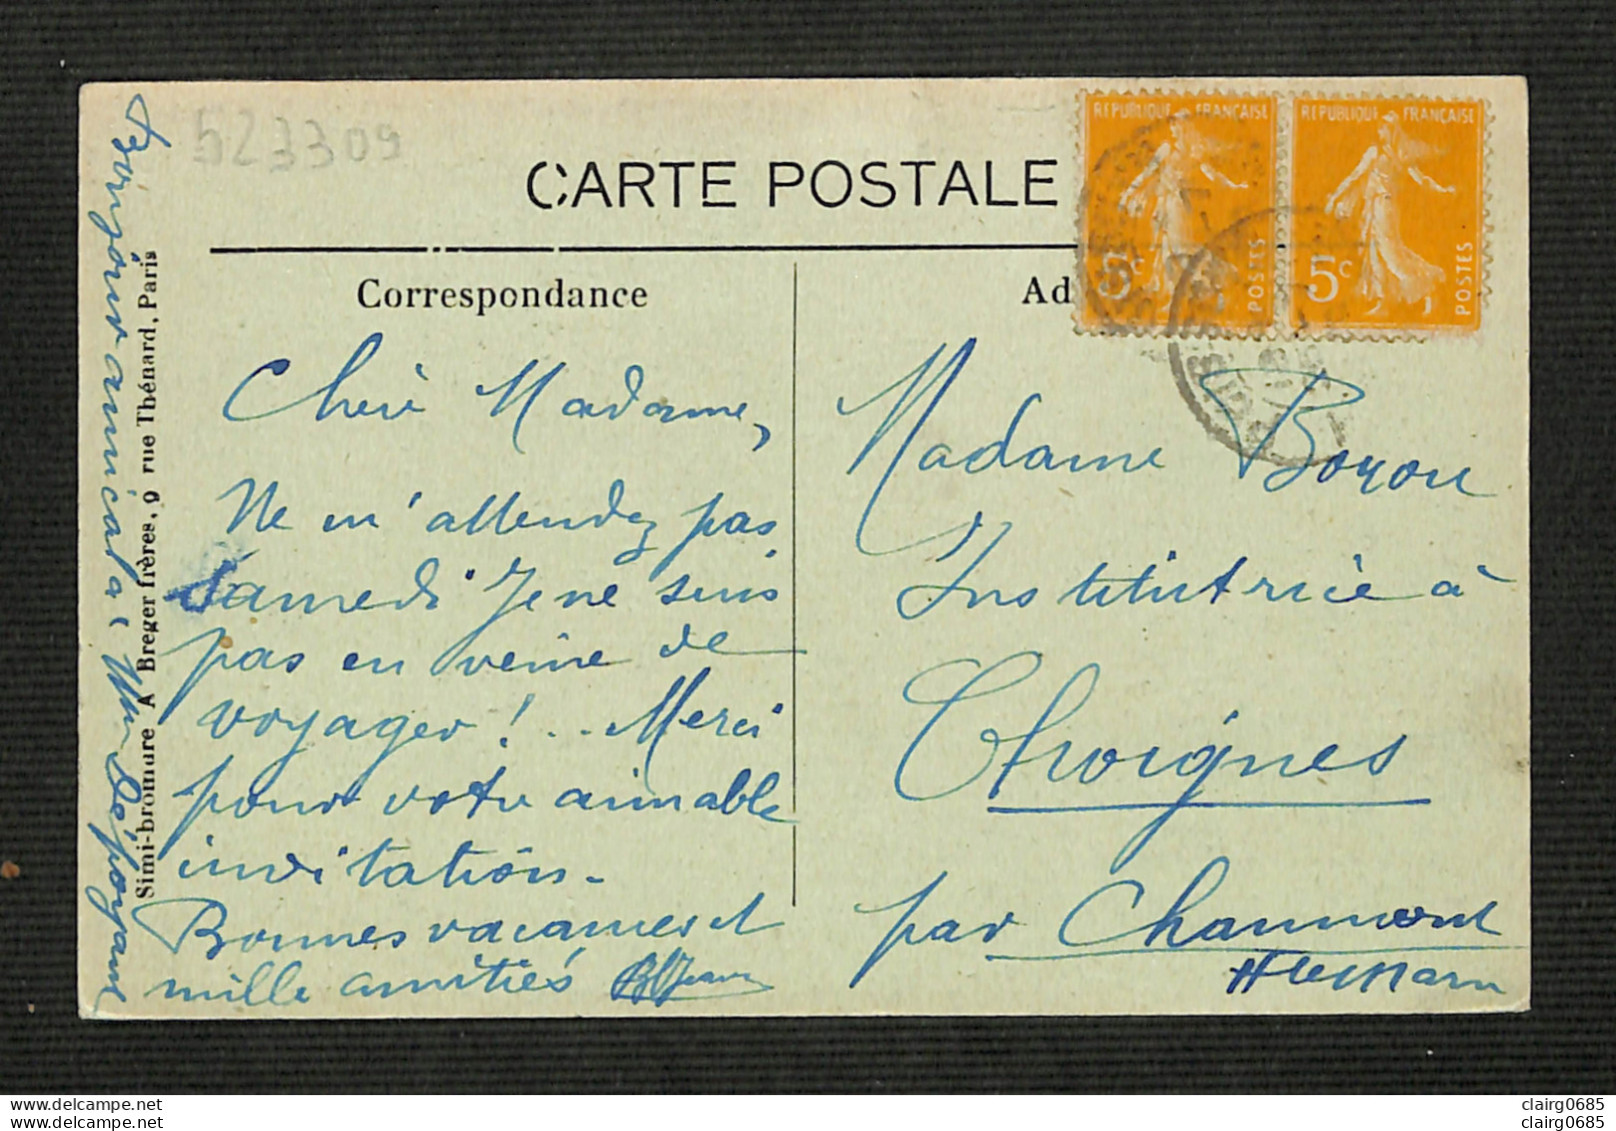 523309
CARTE POSTALE
REPUBLIQUE FRANÇAISE
5c
POSTES
REPUBLIQUE FRANÇAISE
5c
POSTES
Correspondance
Ad
Chère Madame,
Ne m'attendez pas
Samedi Je ne suis
pas en veine de
voyager ! .. Merci
pour votre aimable
invitation -
Bonnes vacances et
mille amitiés
Madame Boyou
Institutrice à
Choignes
par Chaumont
Hte Marne
Bonjour amical à Mme
Simi-bromure A Breger frères, 9 rue Thénard, Paris
clairg0685
clairg0685
www.delcampe.net
www.delcampe.net